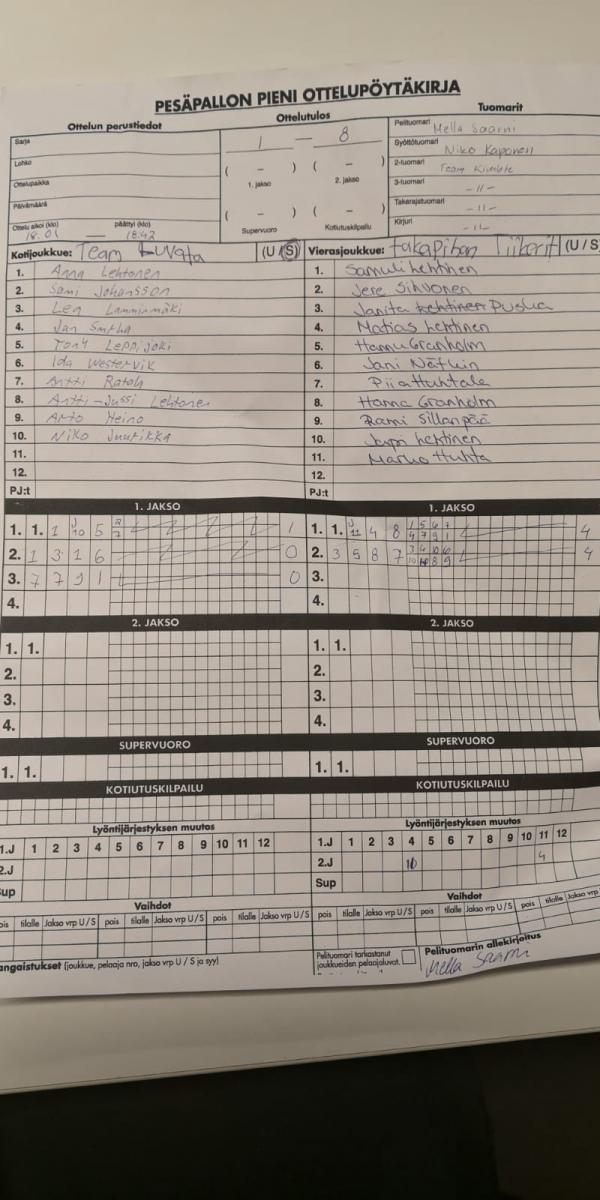 PESÄPALLON PIENI OTTELUPÖYTÄKIRJA
Ottelun perustiedot
Ottelutulos
Tuomarit
Sarja
Lohko
Ottelupaikka
Päivämäärä
Ottelu alkoi (klo) päättyi (klo)
18.01 — 18.42
1 — 8
( – ) ( – )
1. jakso 2. jakso
( – ) ( – )
Supervuoro Kotiutuskilpailu
Pelituomari Mella Saarni
Syöttötuomari Niko Kaponen
2-tuomari Team
3-tuomari -11-
Takarajatuomari -11-
Kirjuri -11-
Kotijoukkue: Team Luvata (U / S)
1. Anna Lehtonen
2. Sami Johansson
3. Leo Lamminmäki
4. Jan
5. Tony Leppijoki
6. Ida Westervik
7. Antti
8. Antti-Jussi Lehtonen
9. Arto Heino
10. Niko
11.
12.
PJ:t
Vierasjoukkue: Takapihan Tiikerit (U / S)
1. Samuli Lehtinen
2. Jere Sihvonen
3. Janita Lehtinen
4. Matias Lehtinen
5. Hannu Granholm
6. Jani
7. Piia Huhtala
8. Hanna Granholm
9. Rami Sillanpää
10. Lehtinen
11. Marko Huhta
12.
PJ:t
1. JAKSO
1. 1. 1 J 10 5 1
2. 1 3 1 6 0
3. 7 7 9 1 0
4.
1. JAKSO
1. 1. J 11 4 8 1 5 6 7 4 7 9 1 4
2. 3 5 8 7 4
3.
4.
2. JAKSO
1. 1.
2.
3.
4.
2. JAKSO
1. 1.
2.
3.
4.
SUPERVUORO
1. 1.
SUPERVUORO
1. 1.
KOTIUTUSKILPAILU
KOTIUTUSKILPAILU
Lyöntijärjestyksen muutos
1.J 1 2 3 4 5 6 7 8 9 10 11 12
2.J
Sup
Lyöntijärjestyksen muutos
1.J 1 2 3 4 5 6 7 8 9 10 11 12
2.J 10 4
Sup
Vaihdot
pois tilalle Jakso vrp U / S pois tilalle Jakso vrp U / S pois tilalle Jakso vrp U / S
Vaihdot
pois tilalle Jakso vrp U / S pois tilalle Jakso vrp U / S pois tilalle Jakso vrp
angaistukset (joukkue, pelaaja nro, jakso vrp U / S ja syy)
Pelituomari tarkastanut
joukkueiden pelaajaluvat.
Pelituomarin allekirjoitus
Mella Saarni